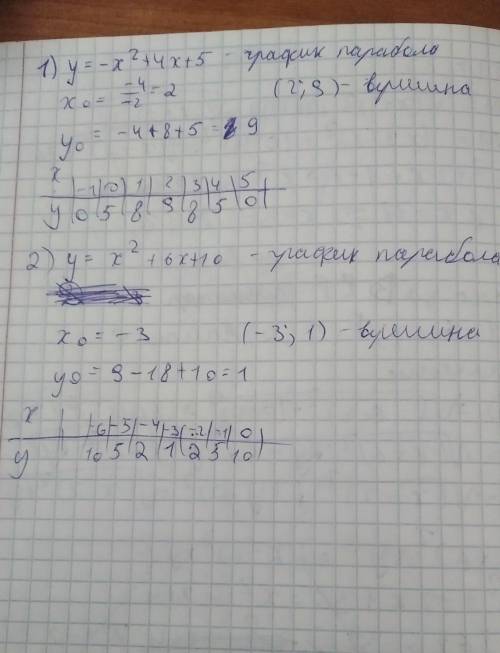 1) y = -x²+4x+5 - график парабола
x₀ = -4/-2 = 2 (2; 9) - вершина
y₀ = -4+8+5 = 9
x | -1 | 0 | 1 | 2 | 3 | 4 | 5
y | 0 | 5 | 8 | 9 | 8 | 5 | 0
2) y = x² + 6x+10 - график парабола
x₀ = -3 (-3; 1) - вершина
y₀ = 9 - 18 + 10 = 1
x | -6 | -5 | -4 | -3 | -2 | -1 | 0
y | 10 | 5 | 2 | 1 | 2 | 5 | 10